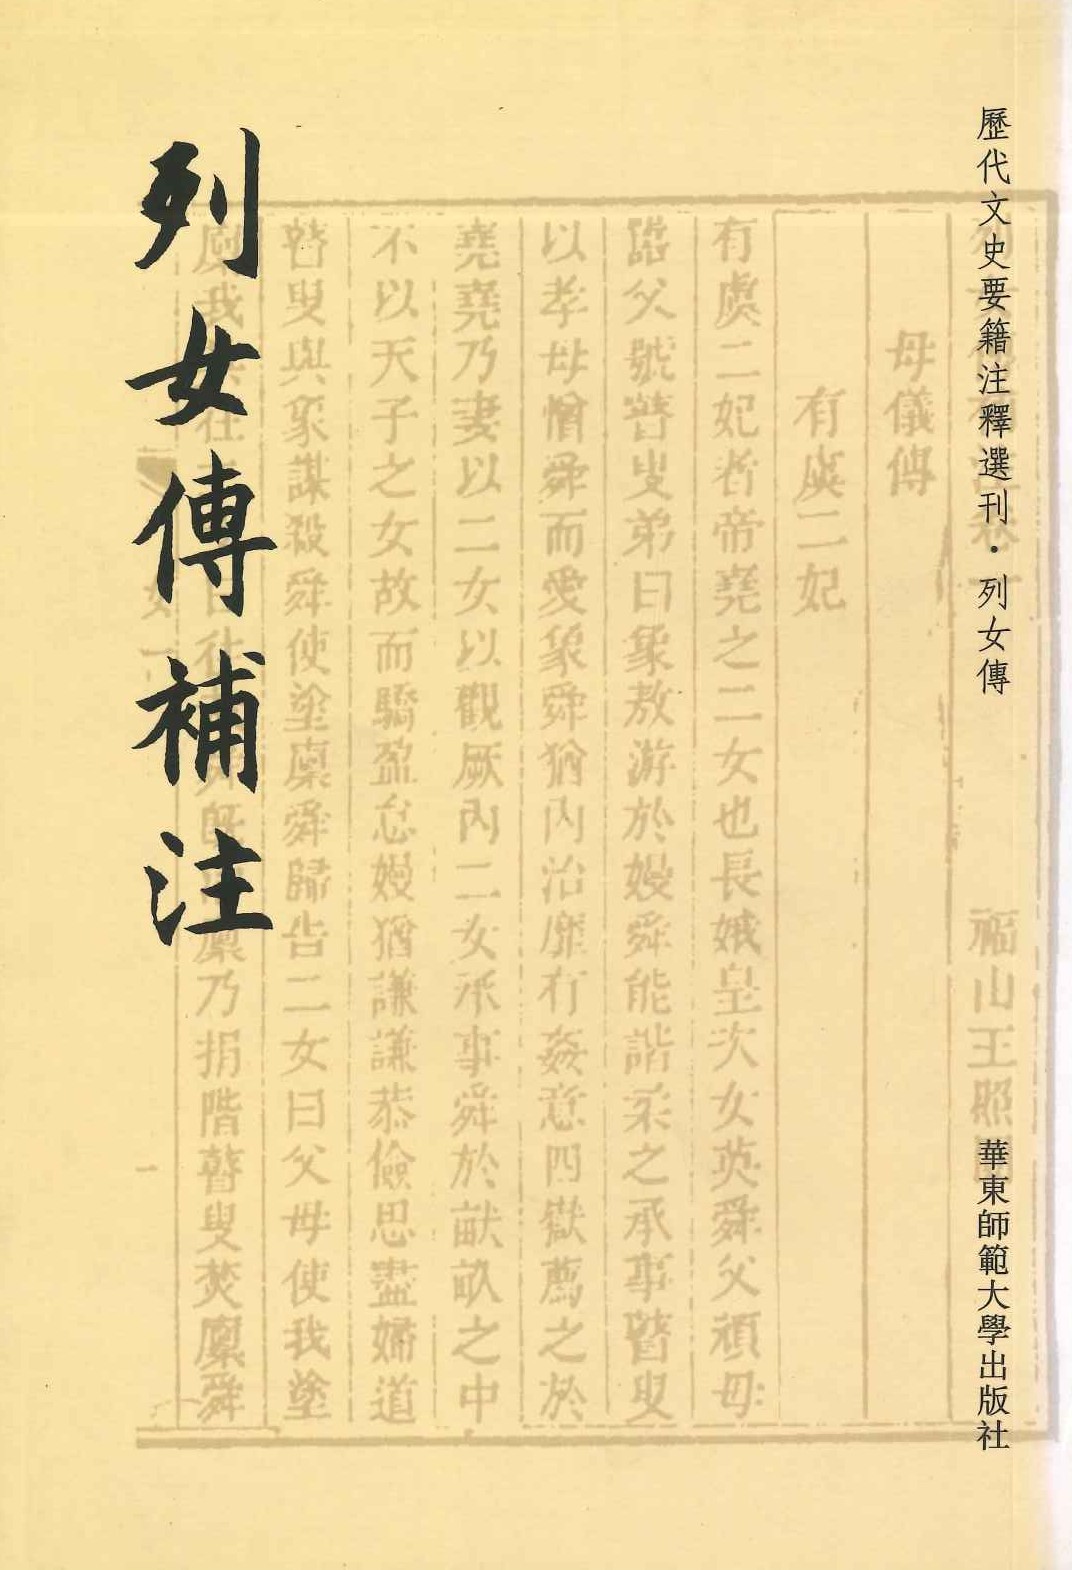 歷代文史要籍注釋選刊·列女傳
華東師範大學出版社
列女傳補注
福山王照
母儀傳
有虞二妃
有虞二妃者帝堯之二女也長娥皇次女英舜父頑母
嚚父號瞽叟弟曰象敖游於嫚舜能諧柔之承事瞽叟
以孝母憎舜而愛象舜猶內治靡有姦意四嶽薦之於
堯堯乃妻以二女以觀厥內二女承事舜於畎畝之中
不以天子之女故而驕盈怠嫚猶謙謙恭儉思盡婦道
瞽叟與象謀殺舜使塗廩舜歸告二女曰父母使我塗
廩我
廩乃捐階瞽叟焚廩舜
一